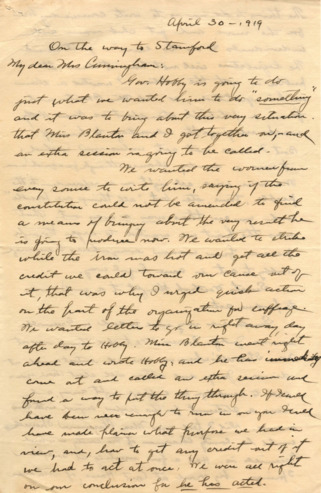 April 30 - 1919
On the way to Stamford
My dear Mrs Cunningham:
Gov. Hobby is going to do
just what we wanted him to do "something"
and it was to bring about this very situation
that Miss Blanton and I got together on, and
an extra session is going to be called.
We wanted the women from
every source to write him, saying if the
constitution could not be amended to find
a means of bringing about the very result he
is going to produce now. We wanted to strike
while the iron was hot and get all the
credit we could toward our cause out of
it, that was why I urged quick action
on the part of the organization for suffrage
We wanted letters to go in right away, day
after day to Hobby. Miss Blanton went right
ahead and wrote Hobby, and he has
come out and called an extra session and
found a way to put this thing through. If I could
have been near enough to run in on you I would
have made plain what purpose we had in
view, and, how to get any credit out of it
we had to act at once. We were all right
on our conclusion for he has acted.